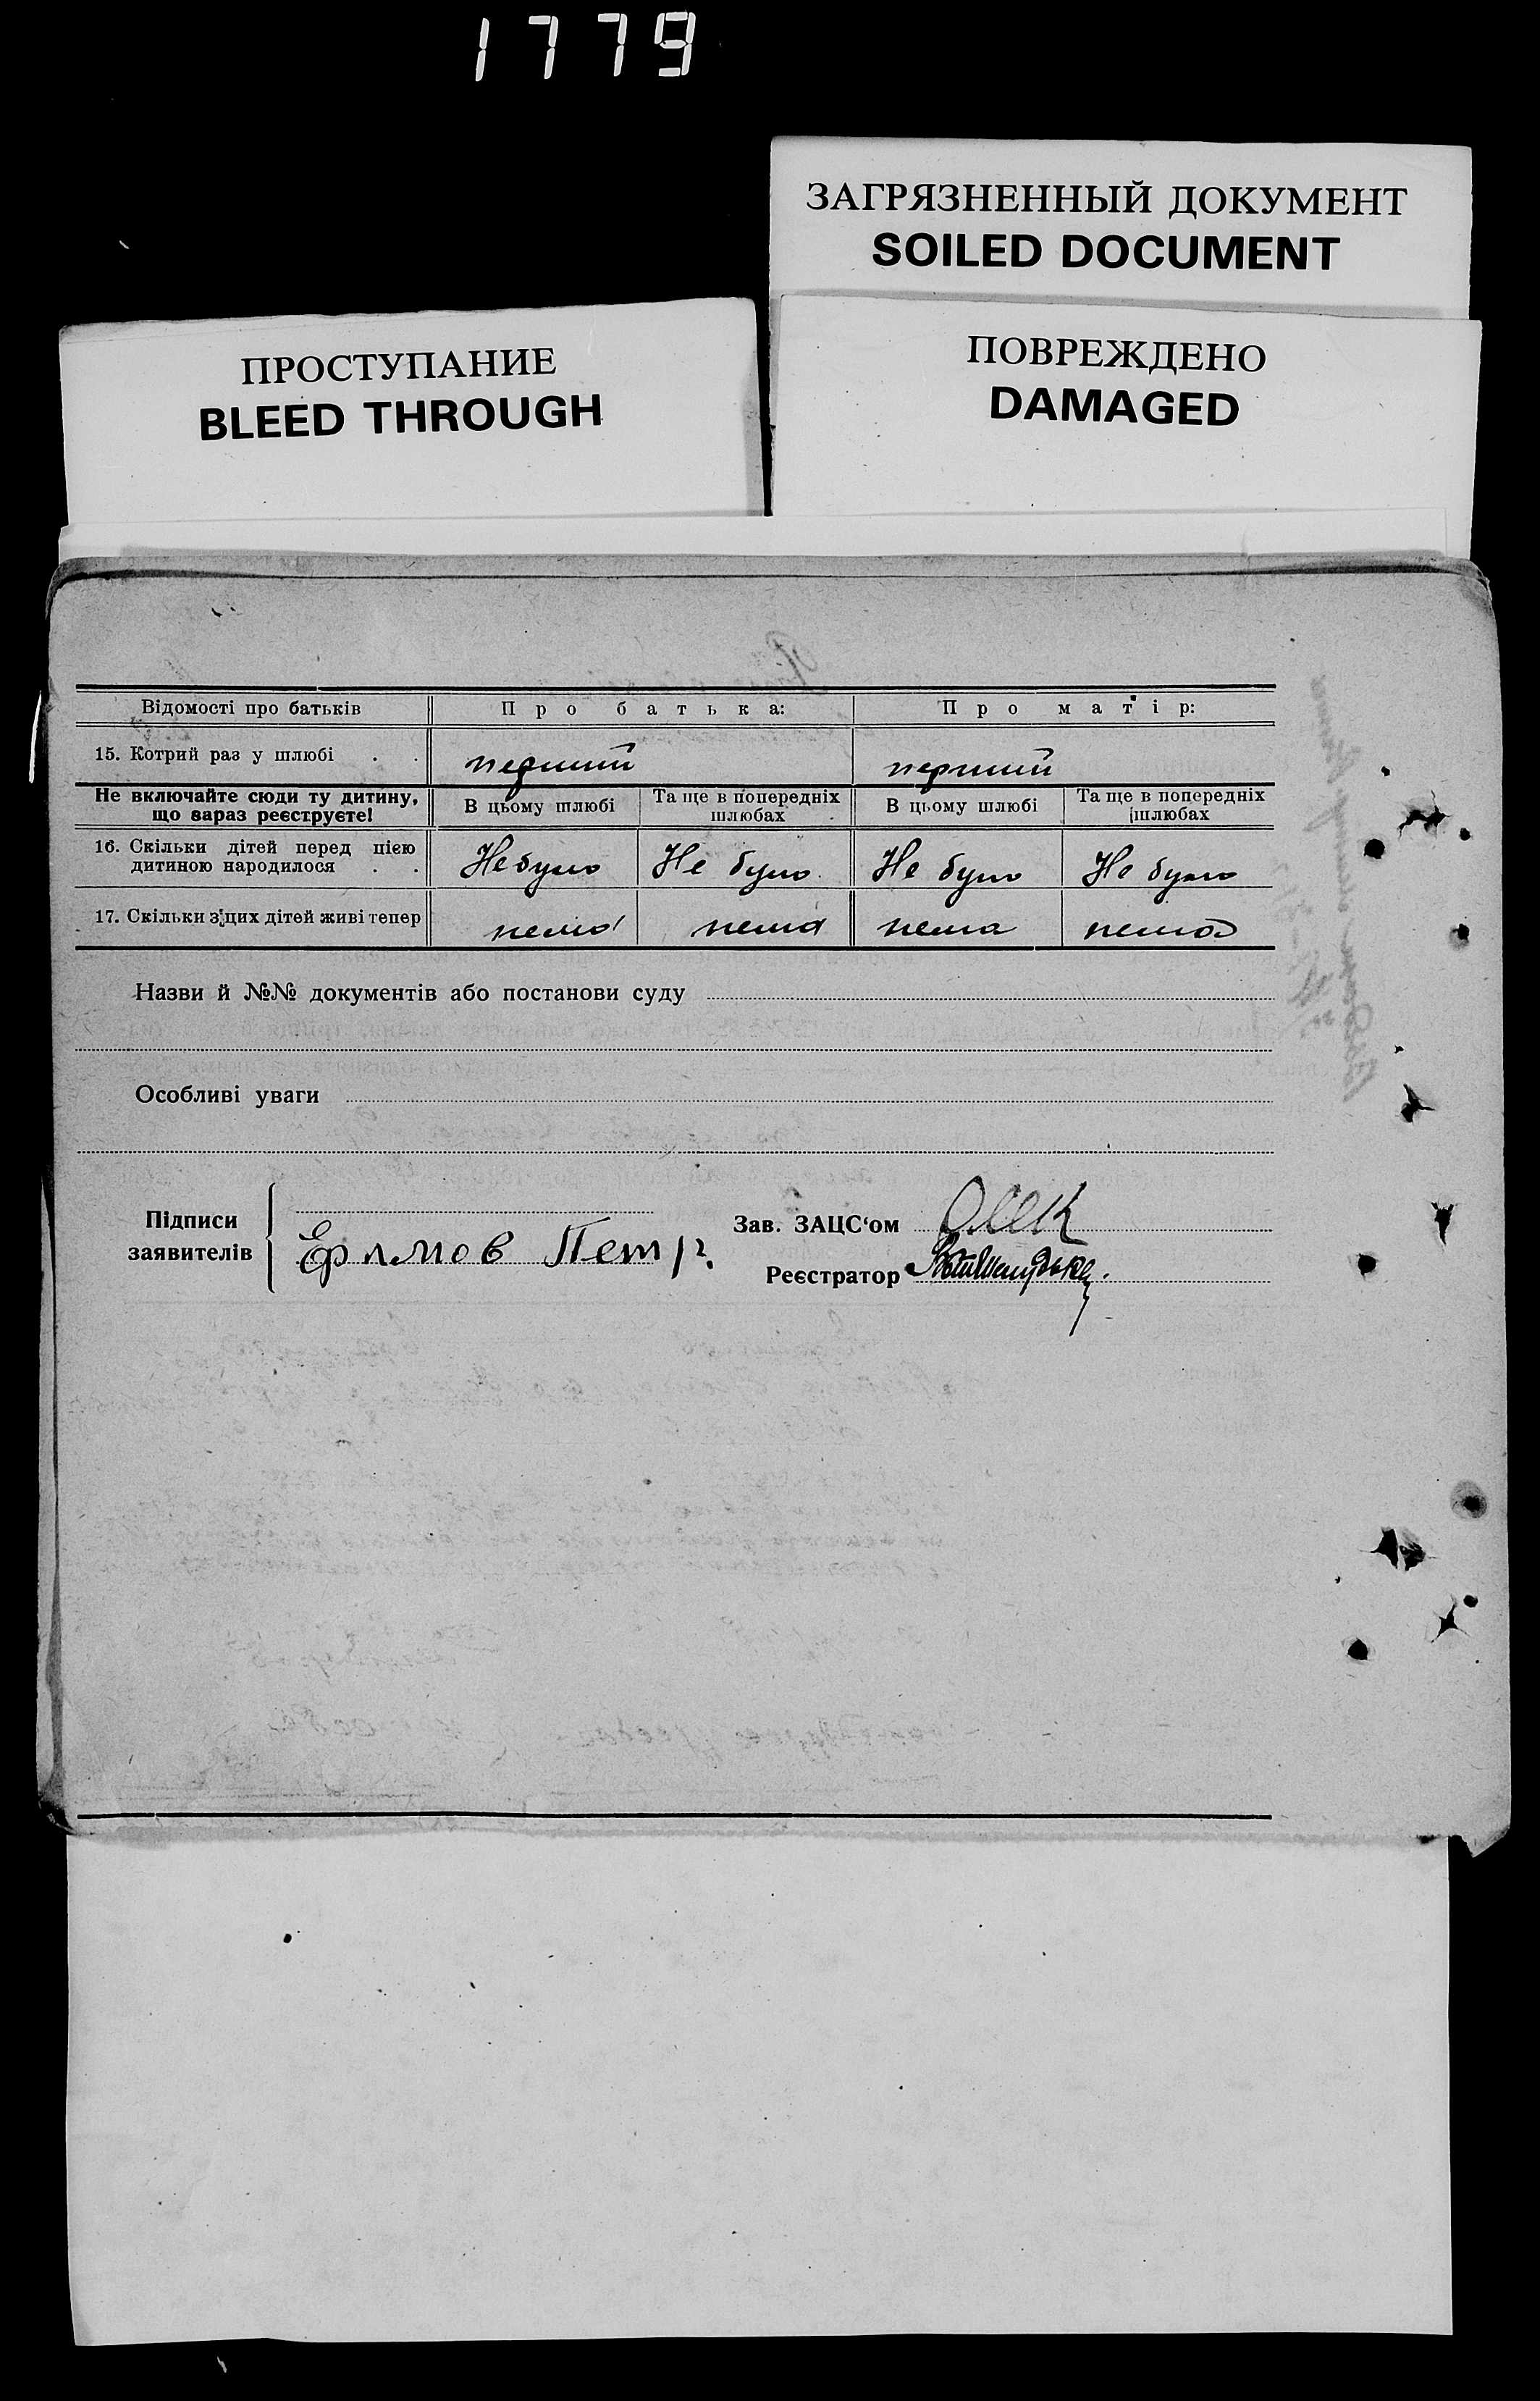 1779
ЗАГРЯЗНЕННЫЙ ДОКУМЕНТ
SOILED DOCUMENT
ПРОСТУПАНИЕ
BLEED THROUGH
ПОВРЕЖДЕНО
DAMAGED
Відомості про батьків Про батька: Про матір:
15. Котрий раз у шлюбі . . перший перший
Не включайте сюди ту дитину, що зараз реєструєте! В цьому шлюбі Та ще в попередніх шлюбах В цьому шлюбі Та ще в попередніх шлюбах
16. Скільки дітей перед цією
дитиною народилося . . Не було Не було Не було Не було
17. Скільки з цих дітей живі тепер нема нема нема нема
Назви й №№ документів або постанови суду
Особливі уваги
Підписи
заявителів
Ефимов Петр.
Зав. ЗАЦС‘ом
Реєстратор